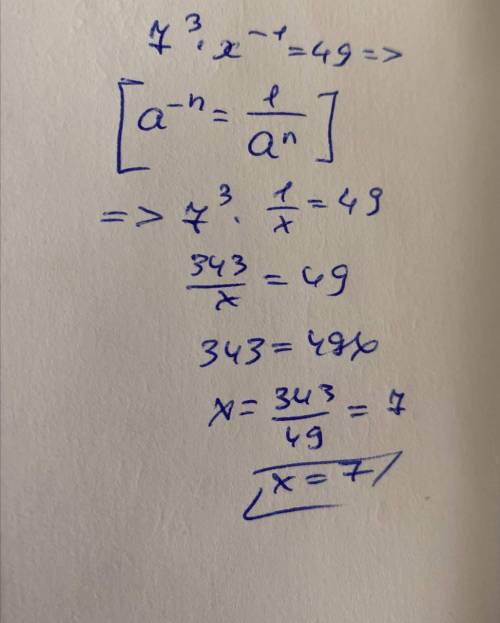 7³ · x⁻¹ = 49 =>
[a⁻ⁿ = 1/aⁿ]
=> 7³ · 1/x = 49
343/x = 49
343 = 49x
x = 343/49 = 7
x = 7